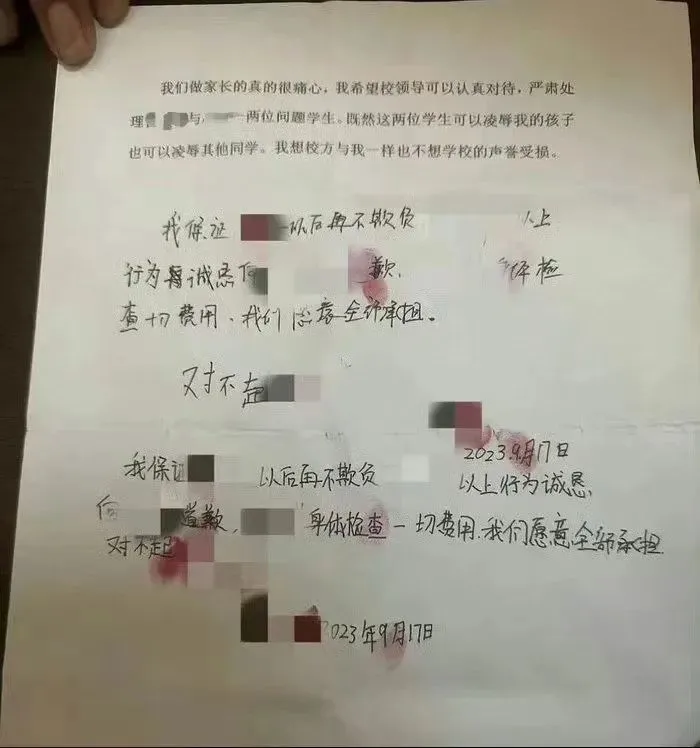 我们做家长的真的很痛心，我希望校领导可以认真对待，严肃处
理 与 一两位问题学生。既然这两位学生可以凌辱我的孩子
也可以凌辱其他同学。我想校方与我一样也不想学校的声誉受损。
我保证 以后再不欺负 以上
行为 诚恳向 歉, 体检
查一切费用、我们愿意全部承担。
对不起
2023.9月17日
我保证 以后再不欺负 以上行为诚恳
向 道歉, 身体检查一切费用.我们愿意全部承担
对不起
2023年9月17日